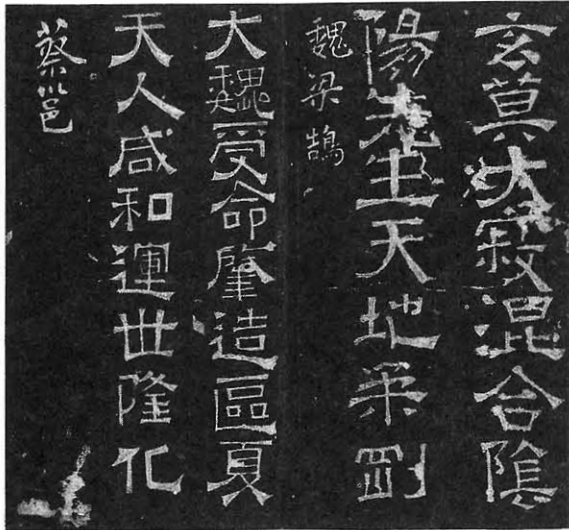 玄莫大寂混合陰
陽先生天地柔剛
魏梁鵠
大魏受命肇造區夏
天人咸和運世隆化
蔡邕